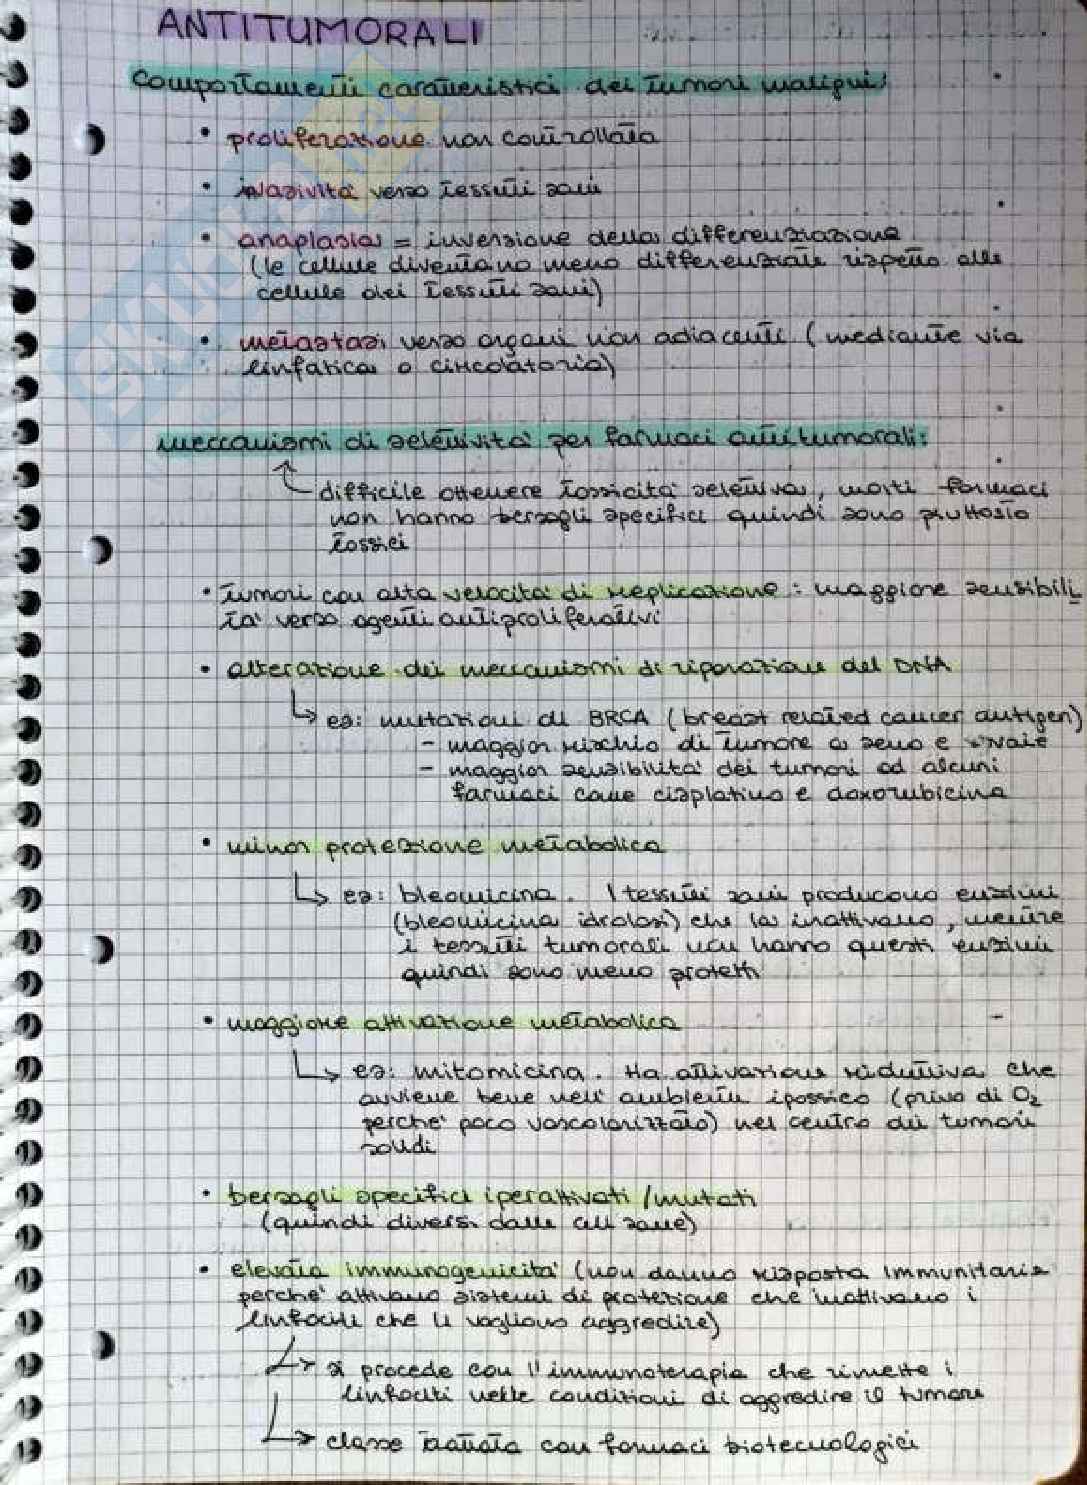 ANTITUMORALI
Comportamenti caratteristici dei tumori maligni:
• proliferazione non controllata
• invasività verso tessuti sani
• anaplasia = inversione della differenziazione
(le cellule diventano meno differenziate rispetto alle
cellule dei tessuti sani)
• metastasi verso organi non adiacenti (mediante via
linfatica o circolatoria)
meccanismi di selettività per farmaci antitumorali:
difficile ottenere tossicità selettiva, molti farmaci
non hanno bersagli specifici quindi sono piuttosto
tossici
• tumori con alta velocità di replicazione: maggiore sensibili
tà verso agenti antiproliferativi
• alterazione dei meccanismi di riparazione del DNA
↳ es: mutazioni di BRCA (breast related cancer antigen)
- maggior rischio di tumore a seno e ovaie
- maggior sensibilità dei tumori ad alcuni
farmaci come cisplatino e doxorubicina
• minor protezione metabolica
↳ es: bleomicina. I tessuti sani producono enzimi
(bleomicina idrolasi) che la inattivano, mentre
i tessuti tumorali non hanno questi enzimi
quindi sono meno protetti
• maggiore attivazione metabolica
↳ es: mitomicina. Ha attivazione riduttiva che
avviene bene nell'ambiente ipossico (privo di O₂
perché poco vascolarizzato) nel centro dei tumori
solidi
• bersagli specifici iperattivati/mutati
(quindi diversi dalle cell sane)
• elevata immunogenicità (non danno risposta immunitaria
perché attivano sistemi di protezione che inattivano i
linfociti che li vogliono aggredire)
↳ si procede con l'immunoterapia che rimette i
linfociti nelle condizioni di aggredire il tumore
↳ classe trattata con farmaci biotecnologici
SKUOLA.net